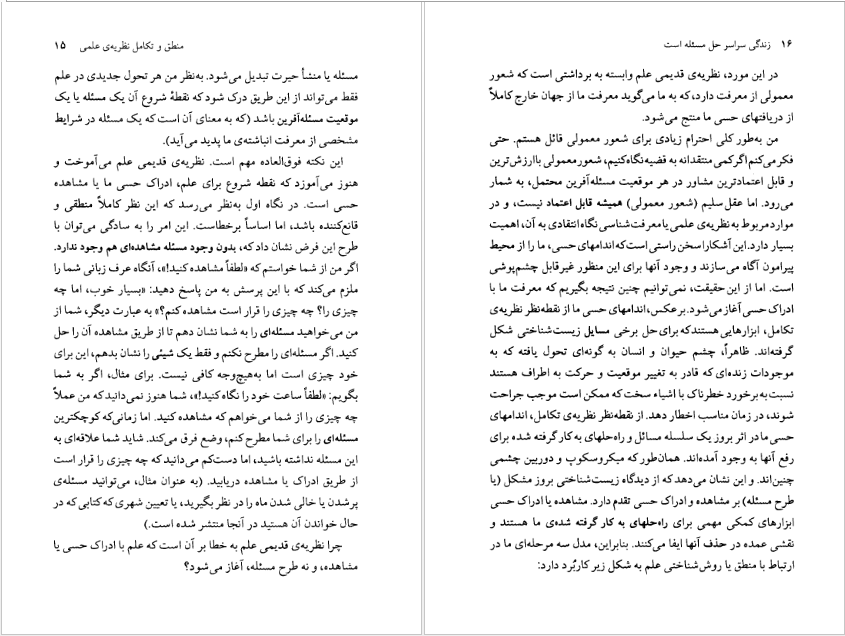 منطق و تکامل نظریه‌ی علمی ۱۵
مسئله یا منشأ حیرت تبدیل می‌شود. به‌نظر من هر تحول جدیدی در علم
فقط می‌تواند از این طریق درک شود که نقطهٔ شروع آن یک مسئله یا یک
موقعیت مسئله‌آفرین باشد (که به معنای آن است که یک مسئله در شرایط
مشخصی از معرفت انباشته‌ی ما پدید می‌آید).
این نکته فوق‌العاده مهم است. نظریه‌ی قدیمی علم می‌آموخت و
هنوز می‌آموزد که نقطه شروع برای علم، ادراک حسی ما یا مشاهده
حسی است. در نگاه اول به‌نظر می‌رسد که این نظر کاملاً منطقی و
قانع‌کننده باشد، اما اساساً برخطاست. این امر را به سادگی می‌توان با
طرح این فرض نشان داد که، بدون وجود مسئله مشاهده‌ای هم وجود ندارد.
اگر من از شما خواستم که «لطفاً مشاهده کنید!»، آنگاه عرف زبانی شما را
ملزم می‌کند که با این پرسش به من پاسخ دهید: «بسیار خوب، اما چه
چیزی را؟ چه چیزی را قرار است مشاهده کنم؟» به عبارت دیگر، شما از
من می‌خواهید مسئله‌ای را به شما نشان دهم تا از طریق مشاهده آن را حل
کنید. اگر مسئله‌ای را مطرح نکنم و فقط یک شیئی را نشان بدهم، این برای
خود چیزی است اما به‌هیچ‌وجه کافی نیست. برای مثال، اگر به شما
بگویم: «لطفاً ساعت خود را نگاه کنید!»، شما هنوز نمی‌دانید که من عملاً
چه چیزی را از شما می‌خواهم که مشاهده کنید. اما زمانی‌که کوچکترین
مسئله‌ای را برای شما مطرح کنم، وضع فرق می‌کند. شاید شما علاقه‌ای به
این مسئله نداشته باشید، اما دست‌کم می‌دانید که چه چیزی را قرار است
از طریق ادراک یا مشاهده دریابید. (به عنوان مثال، می‌توانید مسئله‌ی
پرشدن یا خالی شدن ماه را در نظر بگیرید، یا تعیین شهری که کتابی که در
حال خواندن آن هستید در آنجا منتشر شده است.)
چرا نظریه‌ی قدیمی علم به خطا بر آن است که علم با ادراک حسی یا
مشاهده، و نه طرح مسئله، آغاز می‌شود؟
۱۶ زندگی سراسر حل مسئله است
در این مورد، نظریه‌ی قدیمی علم وابسته به برداشتی است که شعور
معمولی از معرفت دارد، که به ما می‌گوید معرفت ما از جهان خارج کاملاً
از دریافتهای حسی ما منتج می‌شود.
من به‌طور کلی احترام زیادی برای شعور معمولی قائل هستم. حتی
فکر می‌کنم اگر کمی منتقدانه به قضیه نگاه کنیم، شعور معمولی باارزش‌ترین
و قابل اعتمادترین مشاور در هر موقعیت مسئله‌آفرین محتمل، به شمار
می‌رود. اما عقل سلیم (شعور معمولی) همیشه قابل اعتماد نیست، و در
موارد مربوط به نظریه‌ی علمی یا معرفت‌شناسی نگاه انتقادی به آن، اهمیت
بسیار دارد. این آشکارا سخن راستی است که اندامهای حسی، ما را از محیط
پیرامون آگاه می‌سازند و وجود آنها برای این منظور غیرقابل چشم‌پوشی
است. اما از این حقیقت، نمی‌توانیم چنین نتیجه بگیریم که معرفت ما با
ادراک حسی آغاز می‌شود. برعکس، اندامهای حسی ما از نقطه‌نظر نظریه‌ی
تکامل، ابزارهایی هستند که برای حل برخی مسایل زیست‌شناختی شکل
گرفته‌اند. ظاهراً، چشم حیوان و انسان به گونه‌ای تحول یافته که به
موجودات زنده‌ای که قادر به تغییر موقعیت و حرکت به اطراف هستند
نسبت به برخورد خطرناک با اشیاء سخت که ممکن است موجب جراحت
شوند، در زمان مناسب اخطار دهد. از نقطه‌نظر نظریه‌ی تکامل، اندامهای
حسی ما در اثر بروز یک سلسله مسائل و راه‌حلهای به کار گرفته شده برای
رفع آنها به وجود آمده‌اند. همان‌طور که میکروسکوپ و دوربین چشمی
چنین‌اند. و این نشان می‌دهد که از دیدگاه زیست‌شناختی بروز مشکل (یا
طرح مسئله) بر مشاهده و ادراک حسی تقدم دارد. مشاهده یا ادراک حسی
ابزارهای کمکی مهمی برای راه‌حلهای به کار گرفته شده‌ی ما هستند و
نقشی عمده در حذف آنها ایفا می‌کنند. بنابراین، مدل سه مرحله‌ای ما در
ارتباط با منطق یا روش‌شناختی علم به شکل زیر کاربُرد دارد: